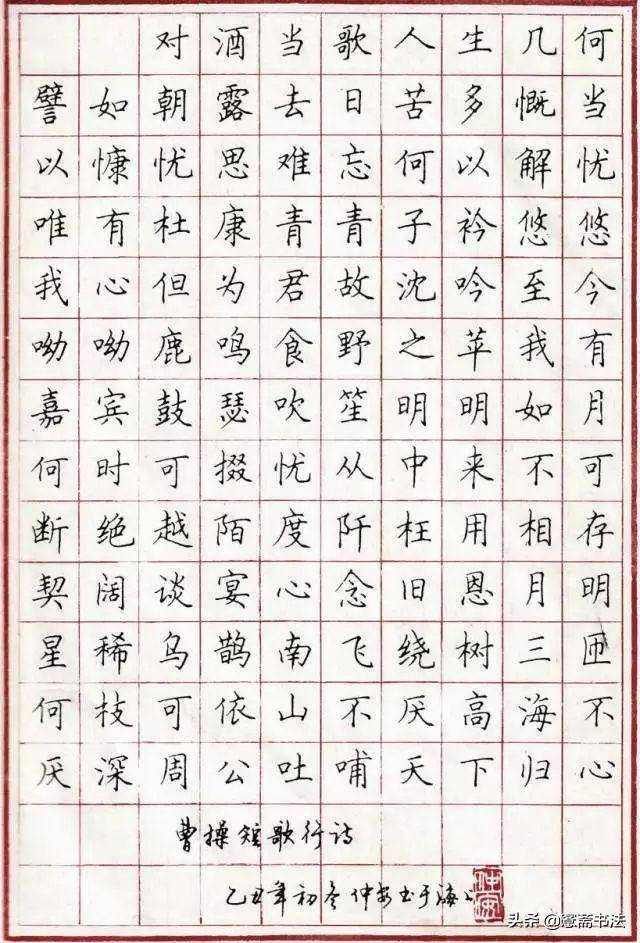 对酒当歌人生几何
譬如朝露去日苦多慨当
以慷忧思难忘何以解忧
唯有杜康青青子衿悠悠
我心但为君故沈吟至今
呦呦鹿鸣食野之苹我有
嘉宾鼓瑟吹笙明明如月
何时可掇忧从中来不可
断绝越陌度阡枉用相存
契阔谈宴心念旧恩月明
星稀乌鹊南飞绕树三匝
何枝可依山不厌高海不
厌深周公吐哺天下归心
曹操短歌行诗
乙丑年初冬仲安书于海上
头条 @斋书法